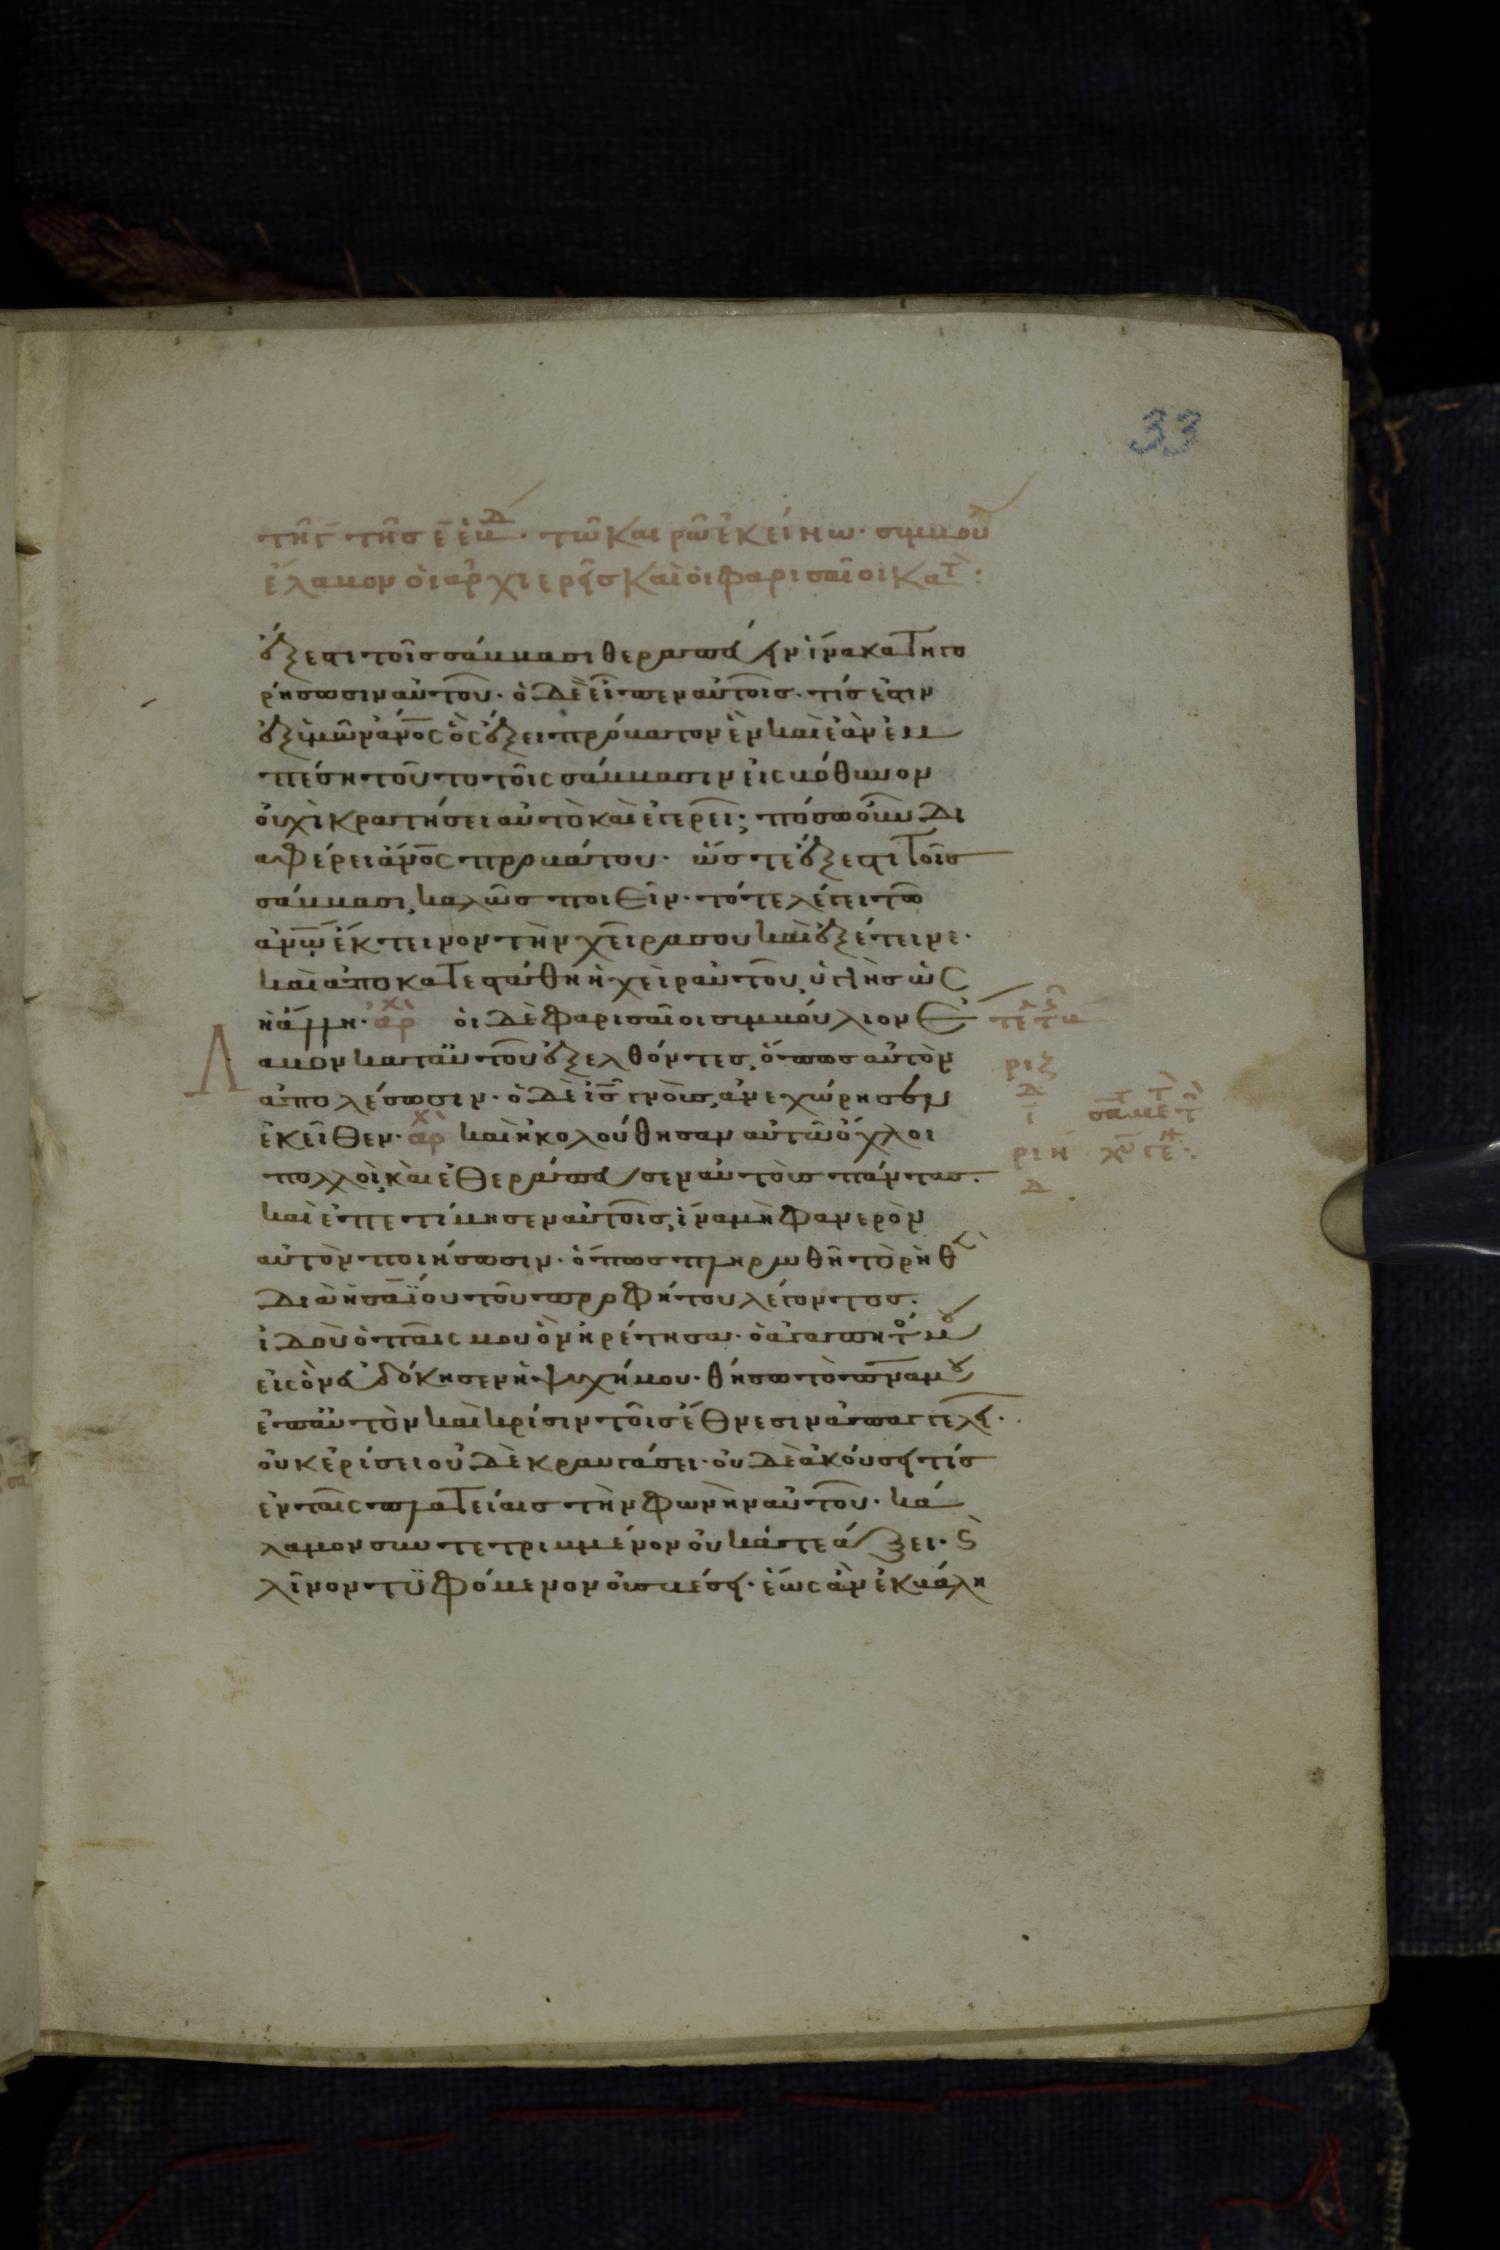 33
τῆς τῆς ε̄ ἑβδ· τῶ καιρῶ ἐκείνω· συμβού
ἔλαβον οἱ ἀρχιερεῖς καὶ οἱ φαρισαῖοι κατ:
ἔξεστι τοῖς σάββασι θεραπεύειν ἵνα κατηγο
ρήσωσιν αὐτοῦ· ὁ δὲ εἶπεν αὐτοῖς· τίς ἐστιν
ἐξ ὑμῶν ἄνος ὃς ἕξει πρόβατον ἓν καὶ ἐὰν ἐμ
πέση τοῦτο τοῖς σάββασιν εἰς βόθυνον
οὐχὶ κρατήσει αὐτὸ καὶ ἐγερεῖ; πόσω οὖν δι
αφέρει ἄνος προβάτου· ὥστε ἔξεστι τοῖς
σάββασι, καλῶς ποιεῖν· τότε λέγει τῶ
ανῶ ἔκτεινον τὴν χεῖρα σου καὶ ἐξέτεινε·
καὶ ἀποκατεστάθη ἡ χεὶρ αὐτοῦ, ὑγιὴς ὡς
ἡ ἄλλη· ἀρχ οἱ δὲ φαρισαῖοι συμβούλιον ἔλ
τε τ
αβον κατ αὐτοῦ ἐξελθόντες, ὅπως αὐτὸν
ριζ
ἀπολέσωσιν· ὁ δὲ ἰς γνοὺς, ἀνεχώρησεν
δ
ι σα με τ
ἐκεῖθεν· ἀρχ καὶ ἠκολούθησαν αὐτῶ ὄχλοι
ριη χυ γε·
πολλοὶ, καὶ ἐθεράπευσεν αὐτοὺς πάντας·
δ
καὶ ἐπετίμησεν αὐτοῖς, ἵνα μὴ φανερὸν
αὐτὸν ποιήσωσιν· ὅπως πληρωθῆ τὸ ρηθὲν
διὰ ἡσαΐου τοῦ προφήτου λέγοντος·
ἰδοὺ ὁ παῖς μου ὃν ἡρέτησα· ὁ ἀγαπητός μου
εἰς ὃν εὐδόκησεν ἡ ψυχή μου· θήσω τὸ πνα μου
ἐπ αὐτὸν καὶ κρίσιν τοῖς ἔθνεσιν ἀπαγγελεῖ·
οὐκ ἐρίσει οὐδὲ κραυγάσει· οὐδὲ ἀκούσει τίς
ἐν ταῖς πλατείαις τὴν φωνὴν αὐτοῦ· κά
λαμον συντετριμμένον οὐ κατεάξει· ϗ
λῖνον τυφόμενον οὐ σβέσει· ἕως ἂν ἐκβάλη